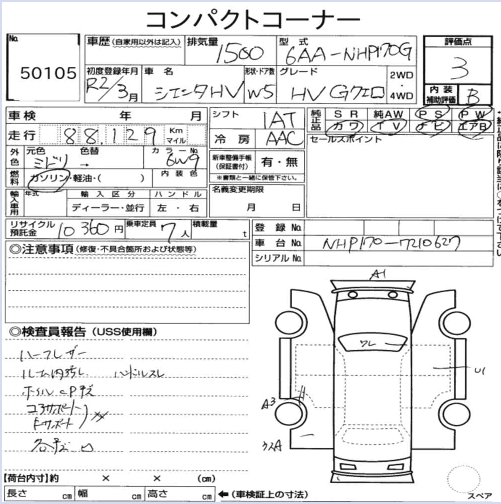 コンパクトコーナー
No.
50105
車歴 (自家用以外は記入)
排気量
1500
型式
6AA-NHP170G
評価点
3
初度登録年月
R2/3月
車名
シエンタHV
形状・ドア数
W5
グレード
HV Gクエロ
2WD
・
4WD
内装
補助評価
B
車検 年 月
シフト
IAT
純正品
SR 純AW PS PW
カワ TV ナビ エアB
走行 88,129 Km マイル
冷房
AAC
セールスポイント
外色 元色 色替 カラーNo.
ミドリ → 6W9
内装色
新車整備手帳
(保証書付)
有・無
※書類と一緒に保管下さい。
燃料 ガソリン・軽油・( )
輸入車用 年式 輸入区分 ハンドル
ディーラー・並行 左・右
名義変更期限
月 日
リサイクル
預託金
10360円
乗車定員
7人
積載量
t
登録No.
車台No.
NHP170-7210627
シリアルNo.
◎注意事項 (修復・不具合箇所および状態等)
A1
ワレ
U1
A3
◎検査員報告 (USS使用欄)
ハーフレザー
ハンドルスレ
コアサポート
Fサポート
【荷台内寸】約 × × (cm)
長さ cm 幅 cm 高さ cm ←(車検証上の寸法)
スペア